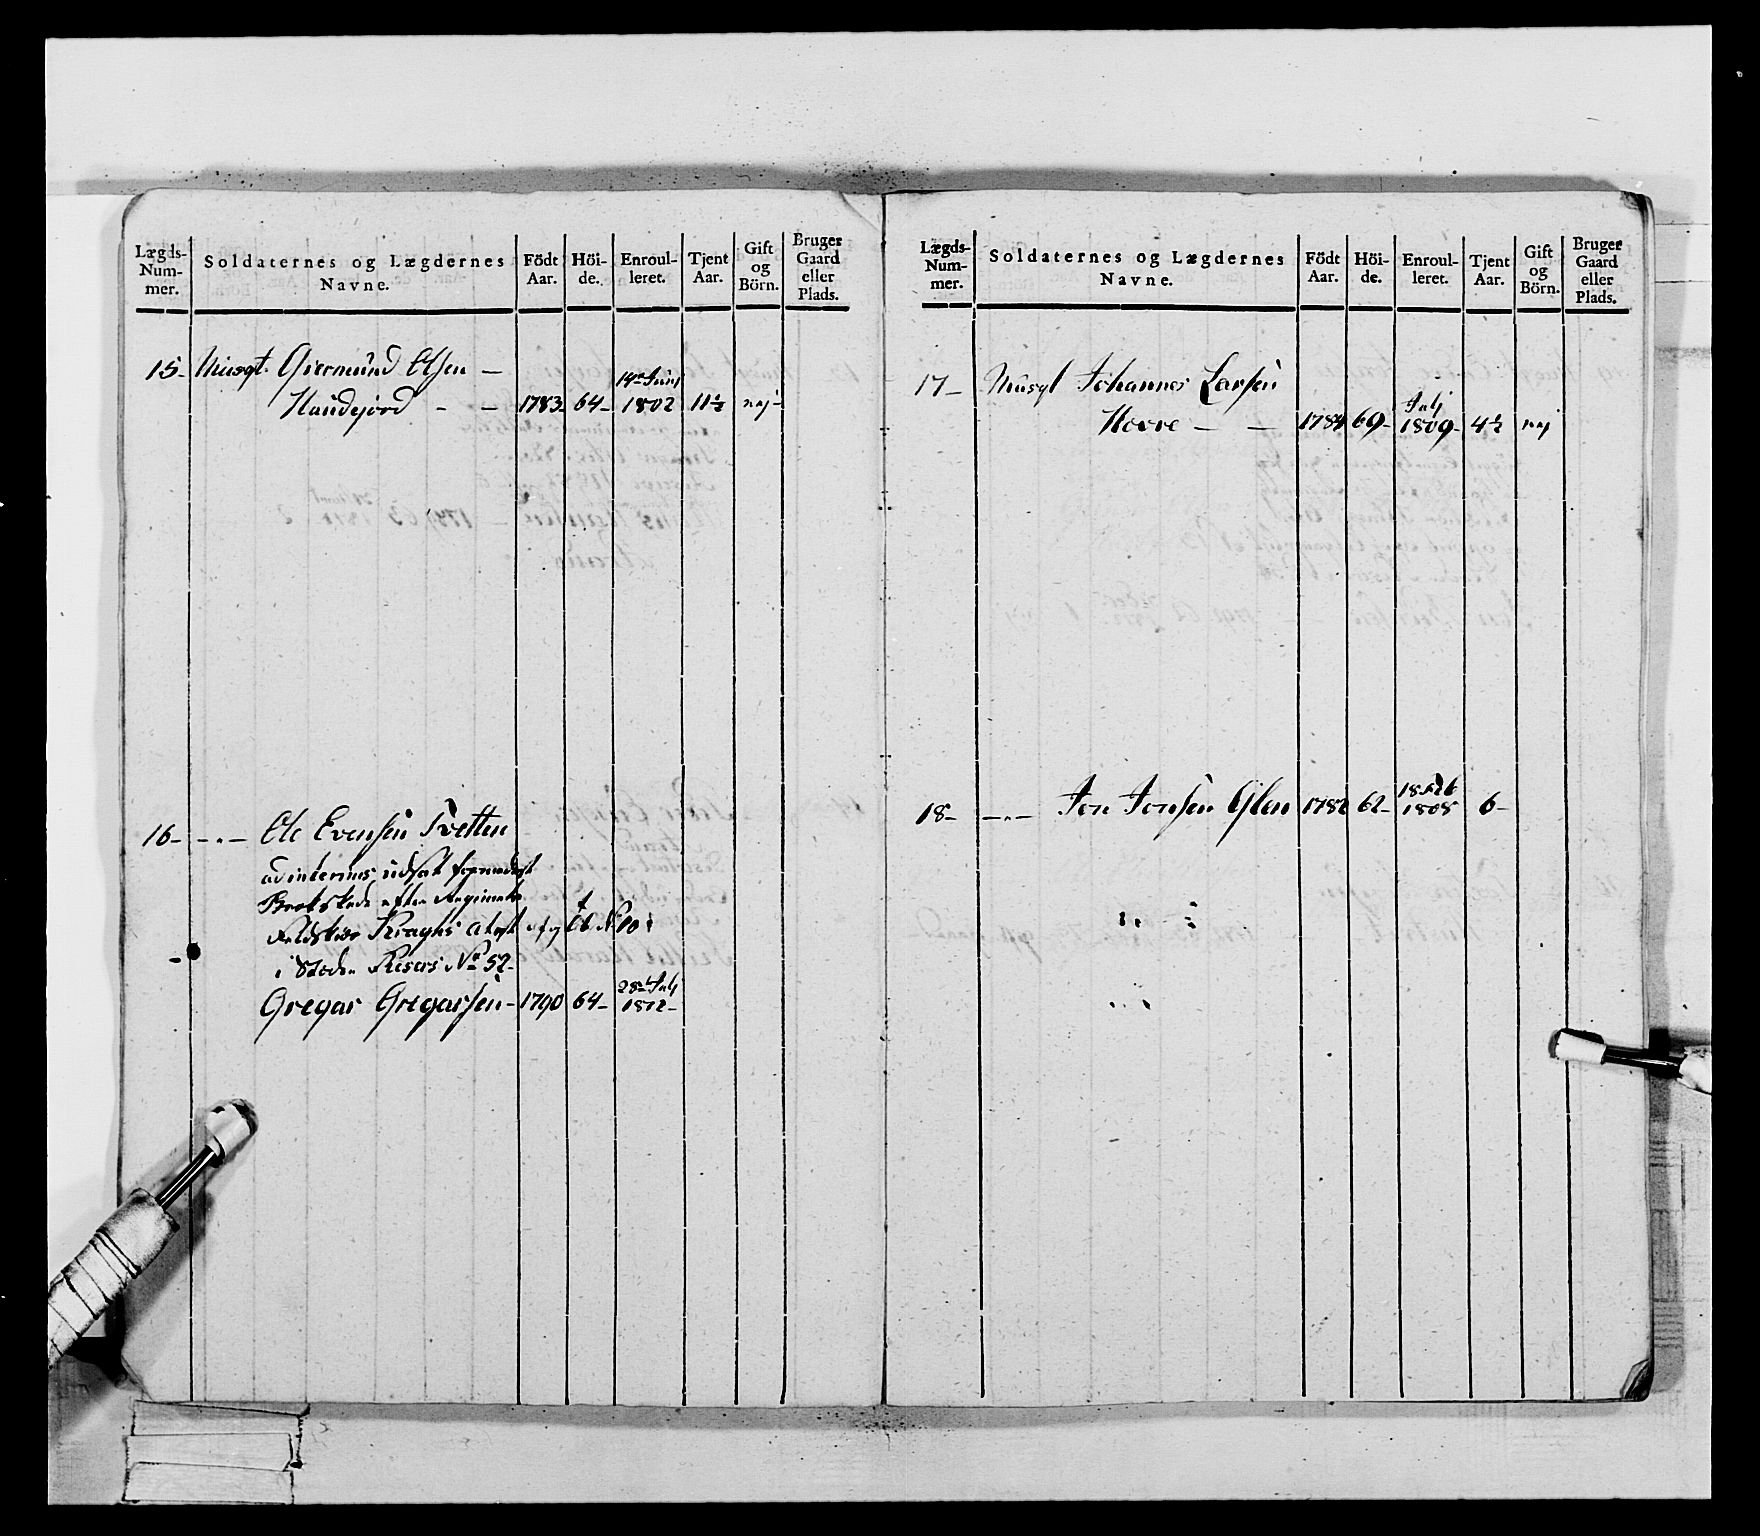 Lægds-
Num-
mer.
Soldaternes og Lægdernes
Navne.
Födt
Aar.
Höi-
de.
Enroul-
leret.
Tjent
Aar.
Gift
og
Börn.
Bruger
Gaard
eller
Plads.
15- Musqt. Giermund Olsen -
14de Junj
- - 1783- 64- 1802 11½ nej-
16- - " - Ole Evensen Tvetten
ad interims udsat formedelst
Brokskade efter Regiments
Feldskiær Kraghs Attest
i Steden Reserv No 52-
Gregar Gregarsen- 1790 64- 1812-
28de Julj
Lægds-
Num-
mer.
Soldaternes og Lægdernes
Navne.
Födt
Aar.
Höi-
de.
Enroul-
leret.
Tjent
Aar.
Gift
og
Börn.
Bruger
Gaard
eller
Plads.
17- Musqt Johannes Larsen
Julj
Hovre - - 1784 69- 1809- 4½ nej
18- - " - Jon Jonsen 1782 62- 1808 6-